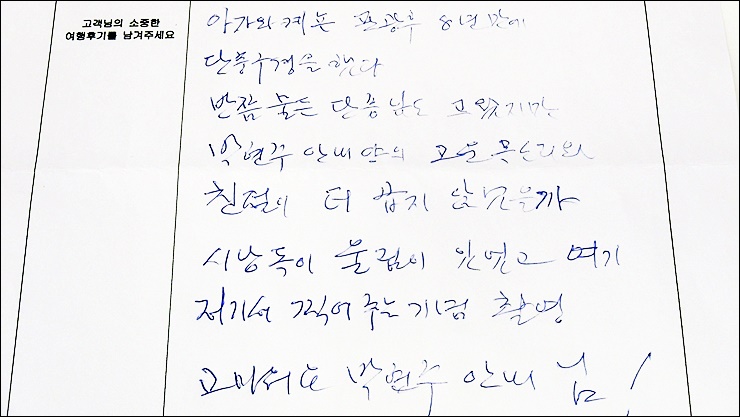 고객님의 소중한
여행후기를 남겨주세요
8년만에
단풍구경을 했다
반쯤 물든 단풍닢도 고왔지만
박현주 안내양의 고운 목소리와
친절이 더 값지 않았을까
시낭독이 울림이 있었고 여기
저기서 찍어주는 기념 촬영
고마워요 박현주 안내 님!